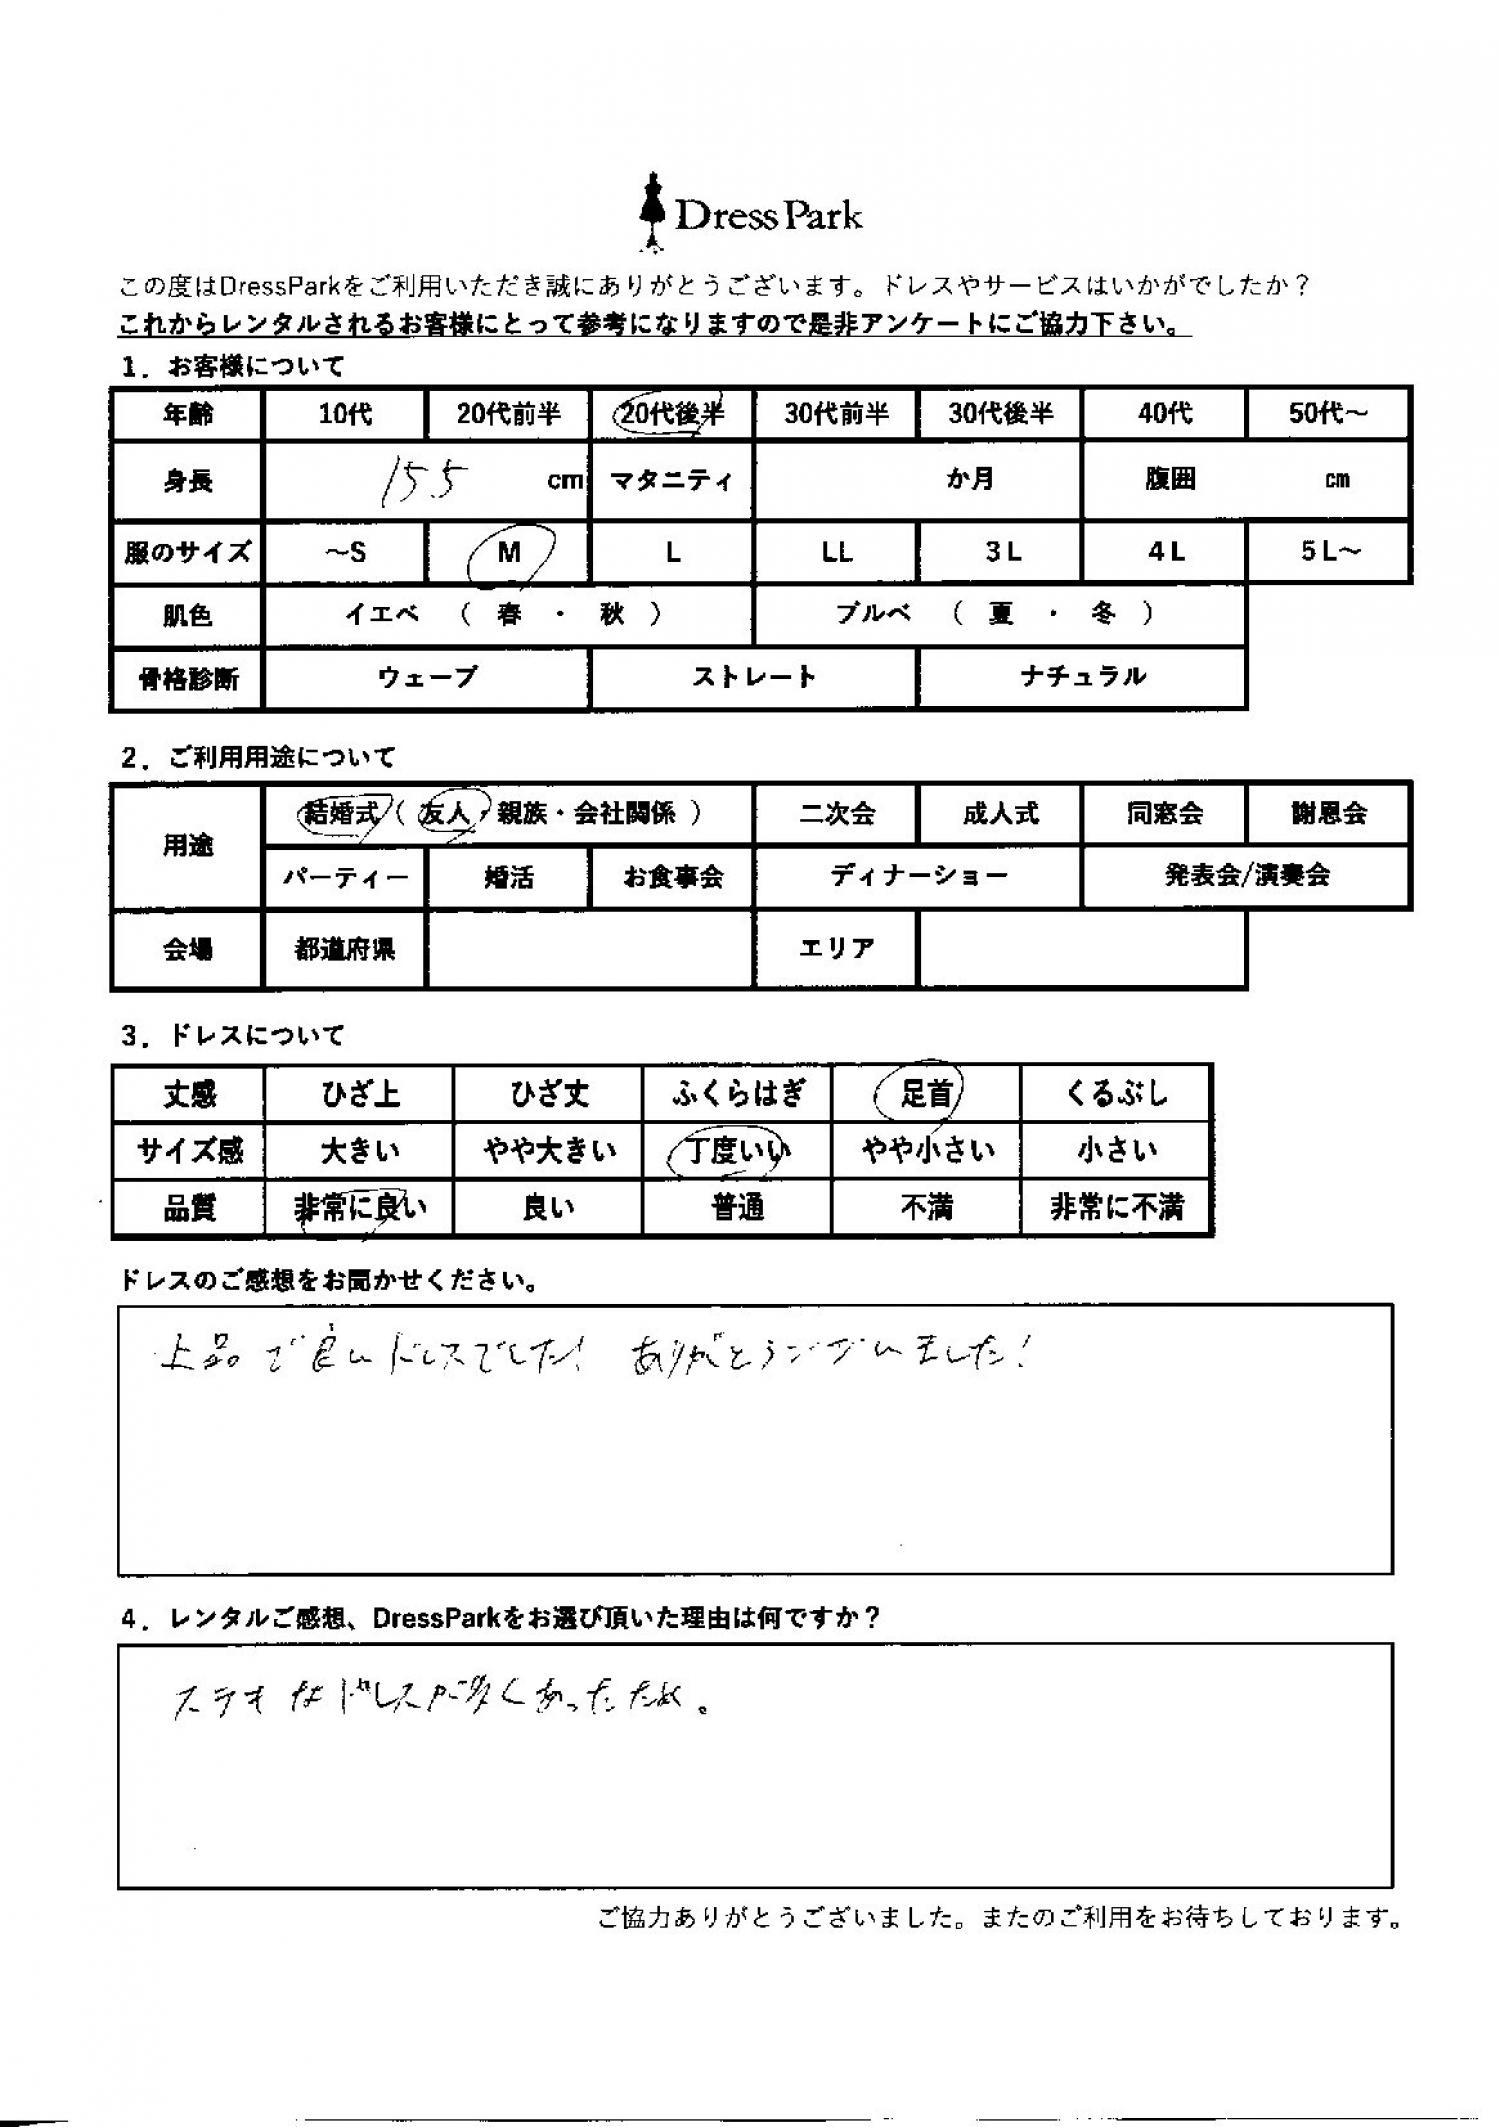 Dress Park
この度はDressParkをご利用いただき誠にありがとうございます。ドレスやサービスはいかがでしたか？
これからレンタルされるお客様にとって参考になりますので是非アンケートにご協力下さい。
1．お客様について
年齢 10代 20代前半 20代後半 30代前半 30代後半 40代 50代～
身長 155 cm マタニティ か月 腹囲 cm
服のサイズ ～S M L LL 3L 4L 5L～
肌色 イエベ （ 春 ・ 秋 ） ブルベ （ 夏 ・ 冬 ）
骨格診断 ウェーブ ストレート ナチュラル
2．ご利用用途について
用途 結婚式（ 友人・親族・会社関係 ） 二次会 成人式 同窓会 謝恩会
パーティー 婚活 お食事会 ディナーショー 発表会/演奏会
会場 都道府県 エリア
3．ドレスについて
丈感 ひざ上 ひざ丈 ふくらはぎ 足首 くるぶし
サイズ感 大きい やや大きい 丁度いい やや小さい 小さい
品質 非常に良い 良い 普通 不満 非常に不満
ドレスのご感想をお聞かせください。
上品で良いドレスでした！ ありがとうございました！
4．レンタルご感想、DressParkをお選び頂いた理由は何ですか？
ステキなドレスが多くあったため。
ご協力ありがとうございました。またのご利用をお待ちしております。